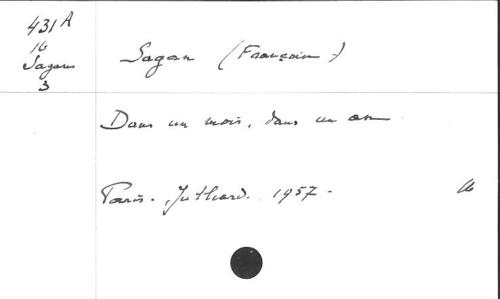 431 A
16
Sagan
3
Sagan (Françoise)
Dans un mois, dans un an
Paris. Julliard. 1957.
16